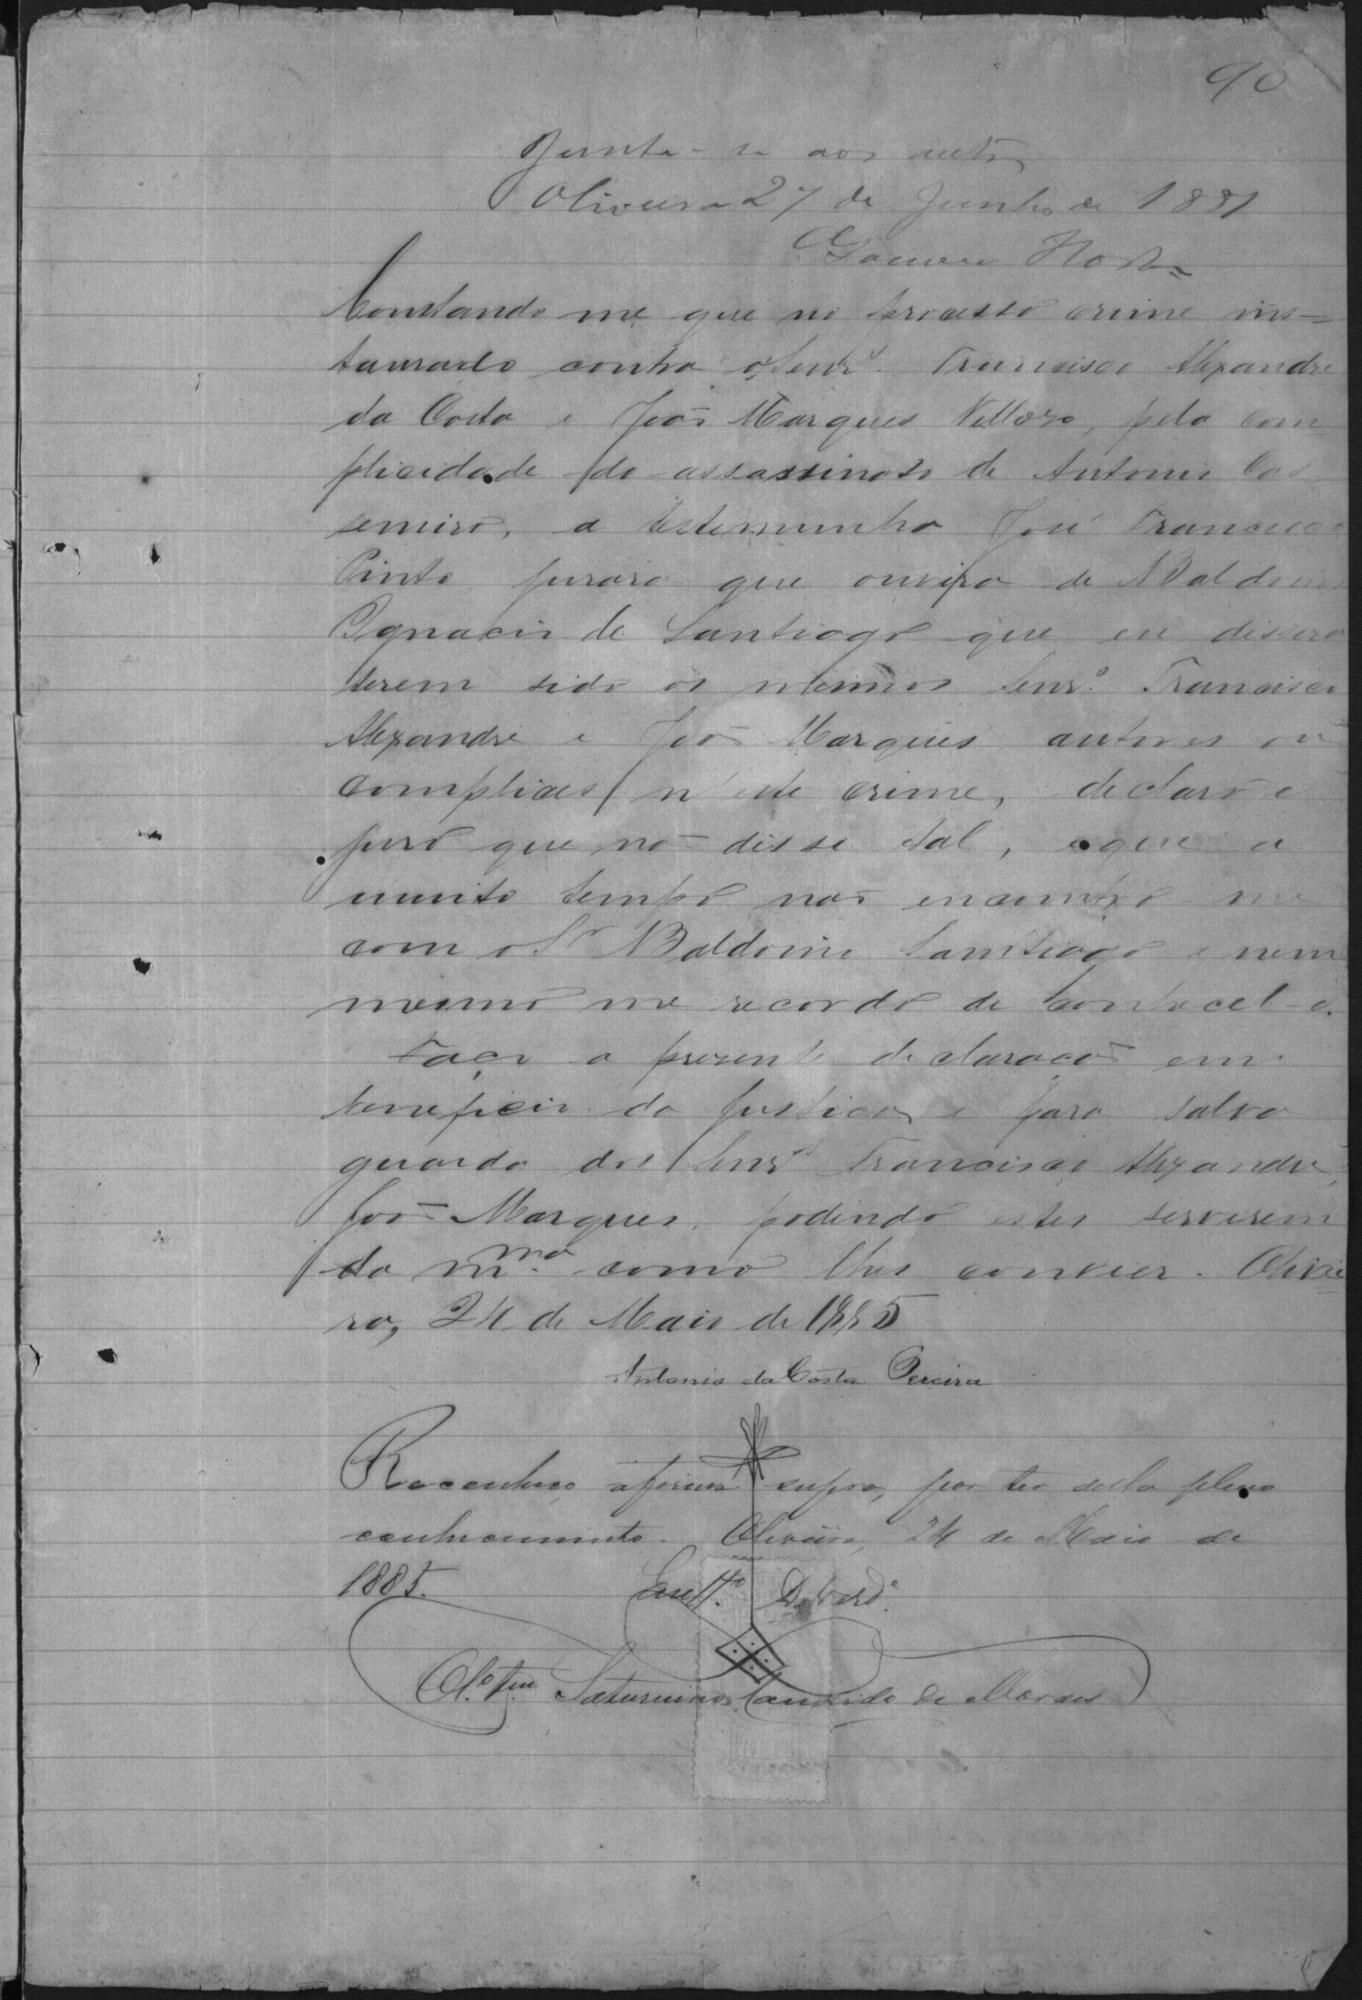 90
Junte-se aos autos
Oliveira 27 de Junho de 1881
Gomes Horta
Constando me que no processo crime ins=
taurado contra os Senrs. Francisco Alexandre
da Costa e João Marques Vellozo, pela com
plicidade do assassinato de Antonio Cas
semiro, a testemunha José Francisco
Pinto jurara que ouvira de Baldoino
Ignacio de Santiago que eu dissera
terem sido os mesmos Senrs. Francisco
Alexandre e João Marques autores ou
complices n'este crime, declaro e
juro que não disse tal, e que a
muito tempo não encontro me
com o Sr Baldoino Santiago e nem
mesmo me recordo de conhecel-o.
Faço a presente declaração em
beneficio da Justiça e para salva
guarda dos Senrs Francisco Alexandre,
João Marques, podendo estes servirem
da mma. como lhes convier. Olivei
ra, 24 de Maio de 1885
Antonio da Costa Pereira
Reconheço a firma supra, por ter della pleno
conhecimento. Oliveira, 24 de Maio de
1885. Em tto. Da Verde.
Saturnino Candido de Moraes